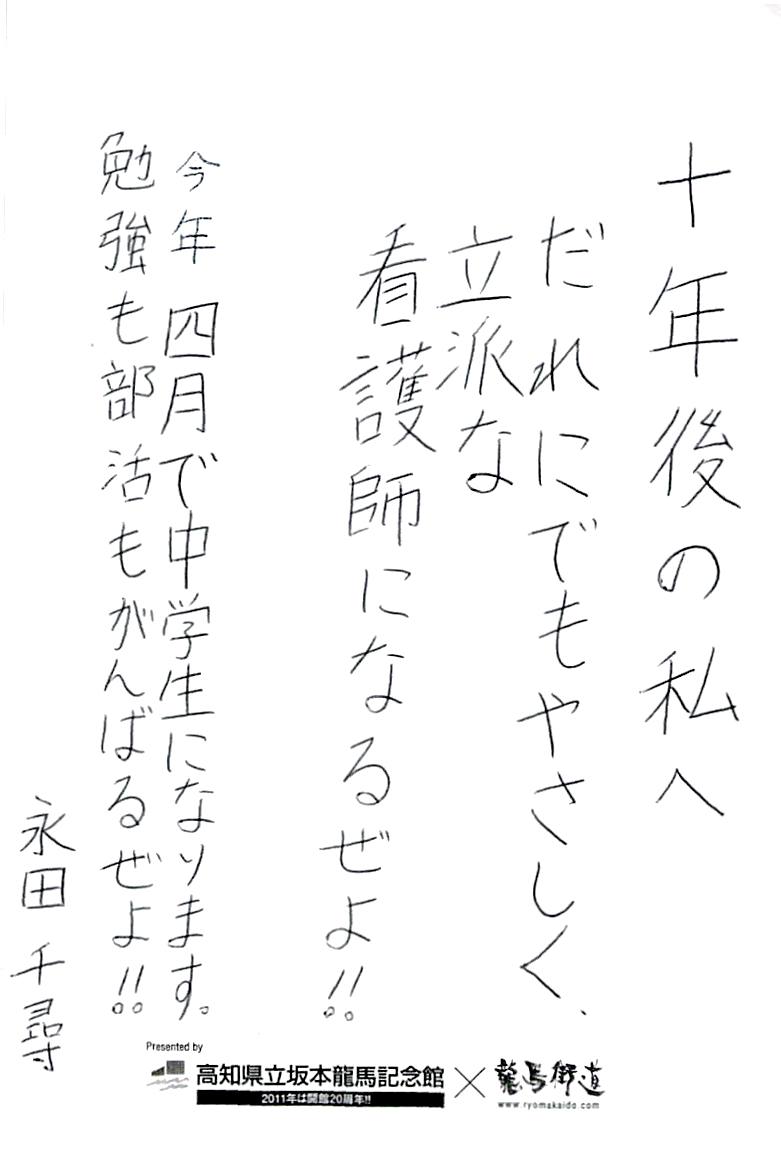 十年後の私へ
だれにでもやさしく、
立派な
看護師になるぜよ!!
今年四月で中学生になります。
勉強も部活もがんばるぜよ!!
永田千尋
Presented by
高知県立坂本龍馬記念館
2011年は開館20周年!!
×
龍馬街道
www.ryomakaido.com